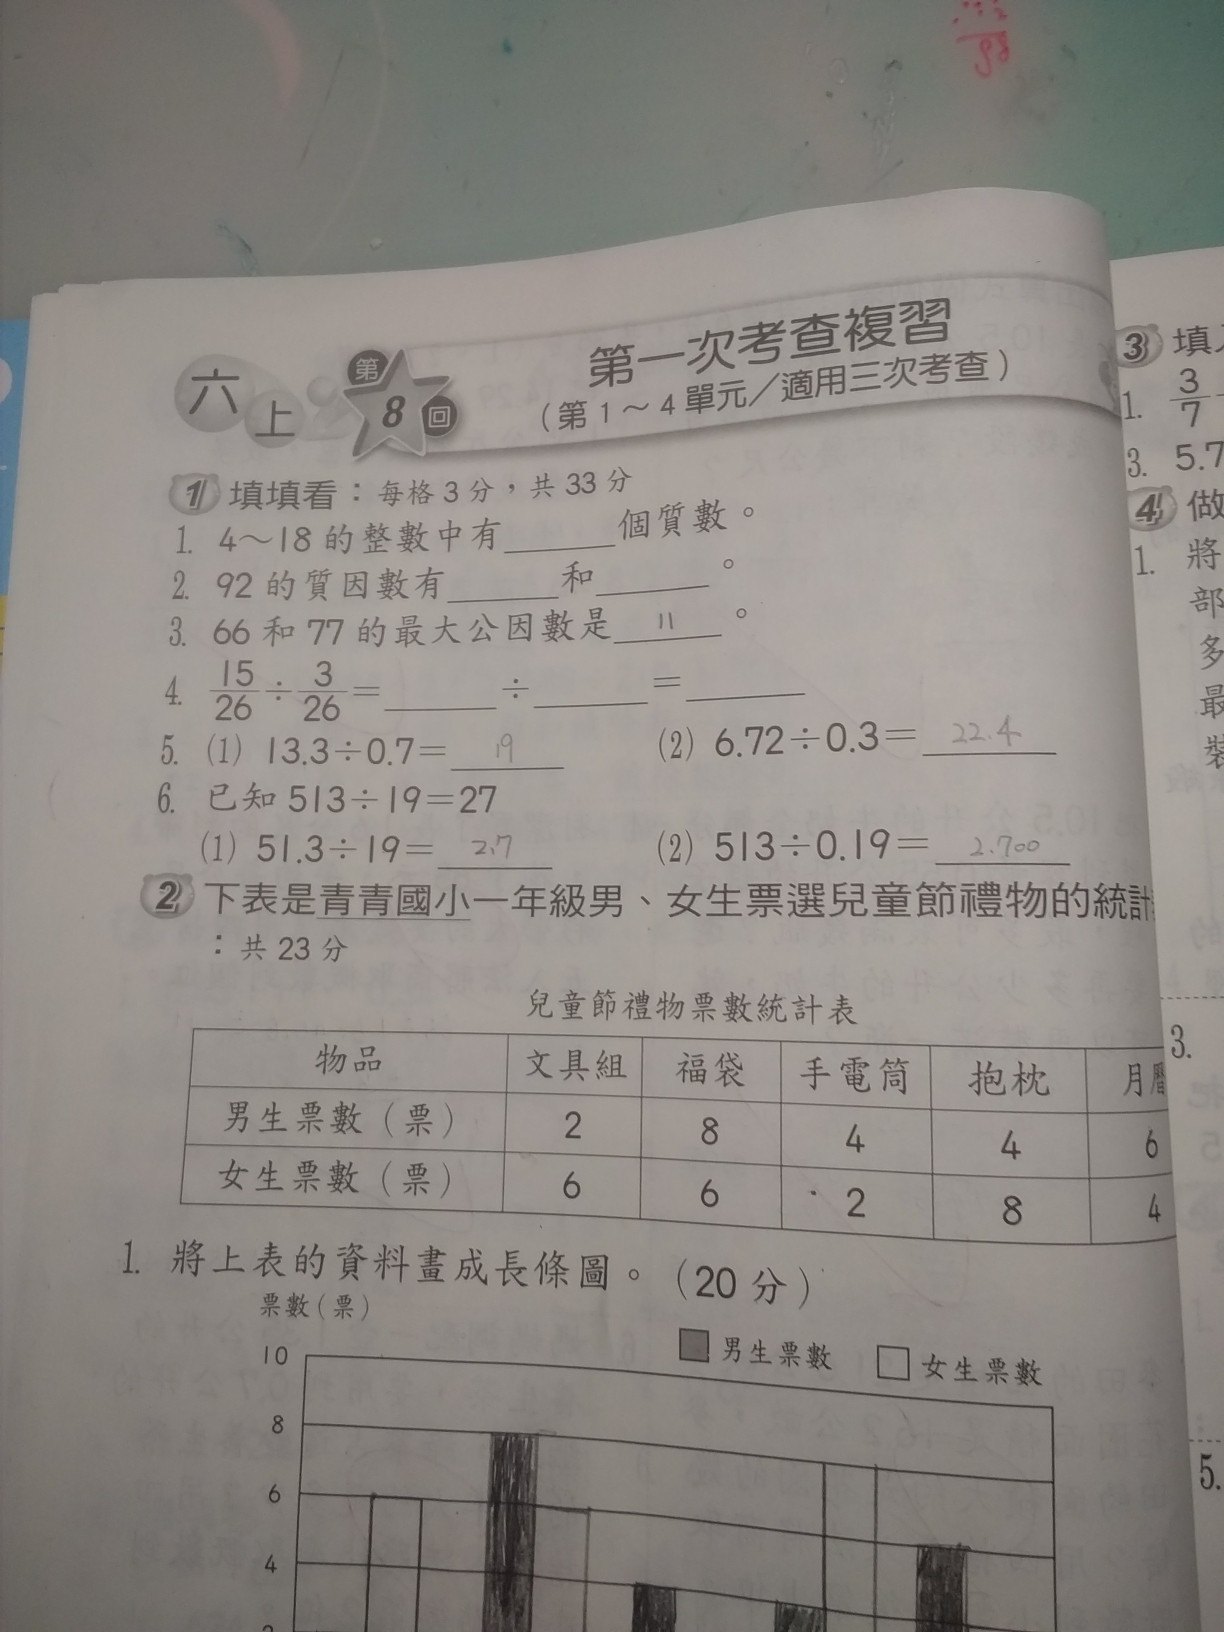 六上 第8回 第一次考查複習
(第1～4單元／適用三次考查)
1 填填看：每格3分，共33分
1. 4～18的整數中有______個質數。
2. 92的質因數有______和______。
3. 66和77的最大公因數是 11 。
4. 15/26÷3/26=______÷______=______
5. (1) 13.3÷0.7= 19 (2) 6.72÷0.3= 22.4
6. 已知513÷19=27
(1) 51.3÷19= 2.7 (2) 513÷0.19= 2.700
2 下表是青青國小一年級男、女生票選兒童節禮物的統計
：共23分
兒童節禮物票數統計表
物品 文具組 福袋 手電筒 抱枕 月曆
男生票數（票） 2 8 4 4 6
女生票數（票） 6 6 2 8 4
1. 將上表的資料畫成長條圖。（20分）
票數（票）
男生票數 女生票數
10
8
6
4
2
3 填
1. 3/7
3. 5.7
4 做
1. 將
部
多
最
裝
3.
5.